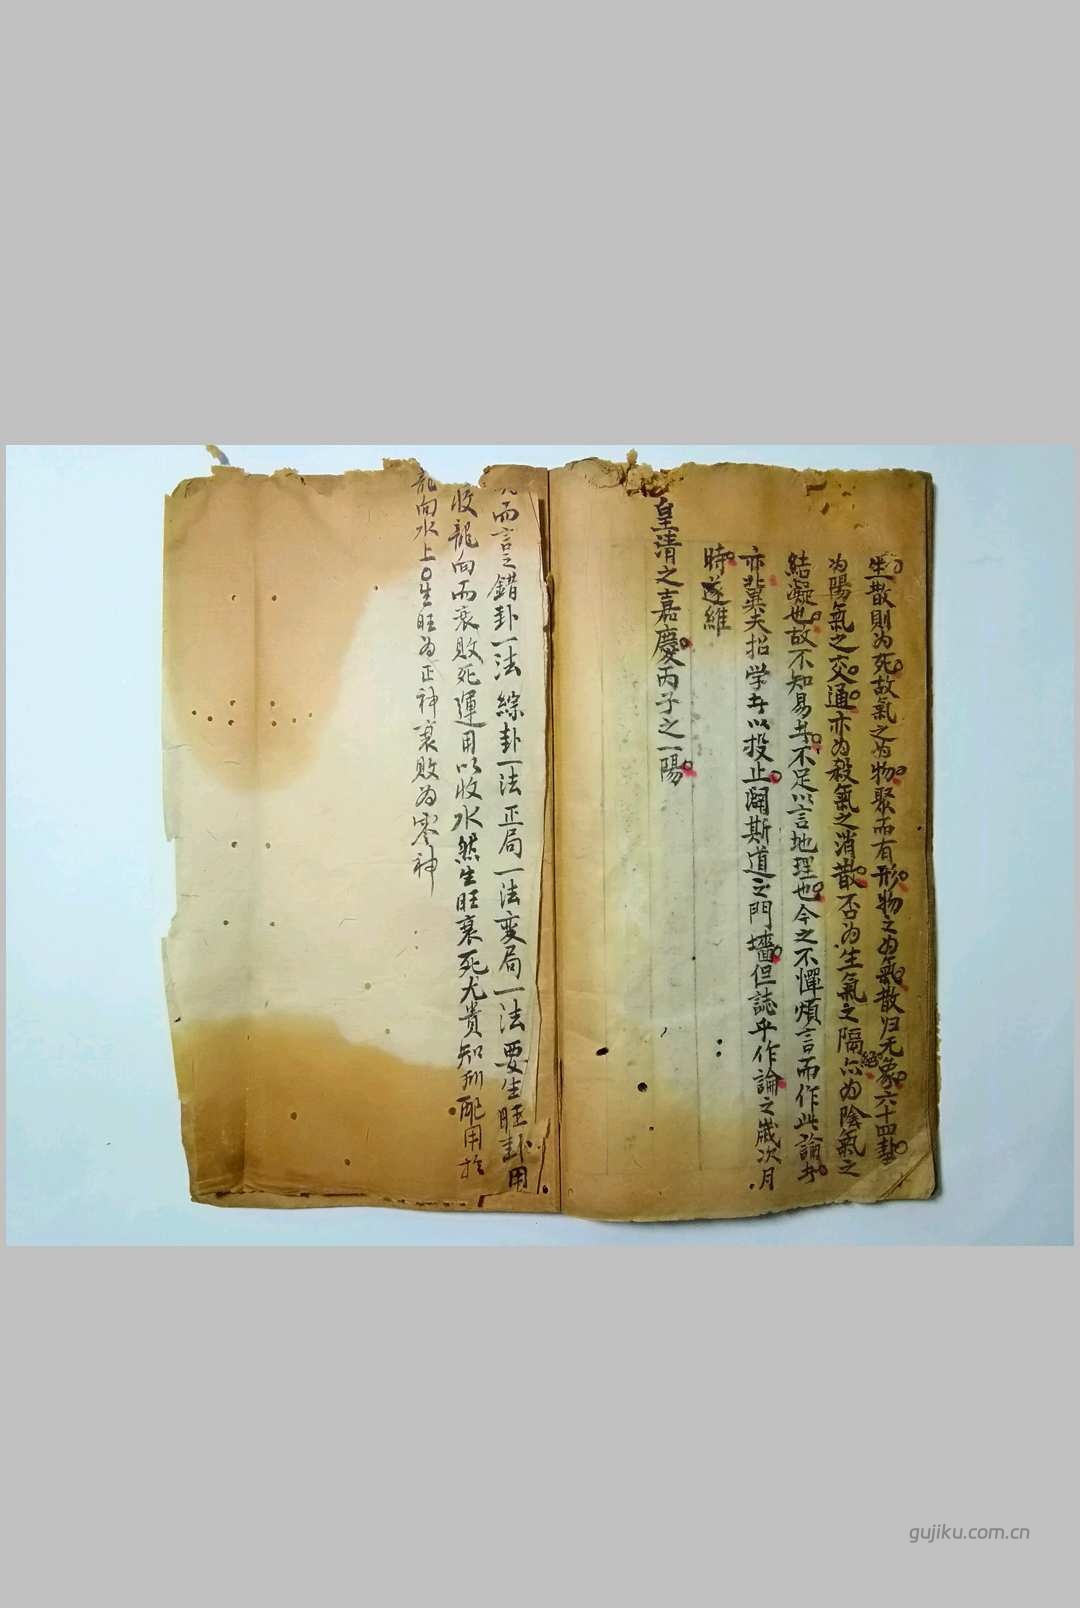 生散則为死故氣之为物聚而有形物之为氣散归无象六十四卦
为陽氣之交通亦为殺氣之消散否为生氣之隔絕亦为陰氣之
結凝也故不知易者不足以言地理也今之不憚煩言而作此論者
亦冀夫招学者以投止闢斯道之門墻但誌乎作論之歲次月
時遂維
皇清之嘉慶丙子之一陽
而言之錯卦一法綜卦一法正局一法变局一法要生旺卦用
收龍向而衰敗死運用以收水然生旺衰死尤貴知所配用於
龍向水上生旺为正神衰敗为零神
gujiku.com.cn